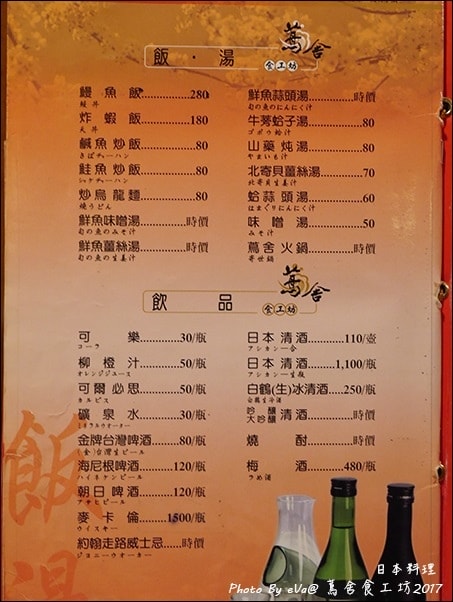 飯・湯
蔦舍
食工坊
鰻魚飯............280
鰻丼
炸蝦飯............180
天丼
鹹魚炒飯............80
さばチャーハン
鮭魚炒飯............80
シャケチャーハン
炒烏龍麵............80
焼うどん
鮮魚味噌湯............時價
旬の魚のみそ汁
鮮魚薑絲湯............時價
旬の魚の生姜汁
鮮魚蒜頭湯............時價
旬の魚のにんにく汁
牛蒡蛤子湯............80
ゴボウ蛤汁
山藥炖湯............80
やまいも汁
北寄貝薑絲湯............70
北寄貝生姜汁
蛤蒜頭湯............60
はまぐりにんにく汁
味噌湯............50
みそ汁
蔦舍火鍋............時價
寄世鍋
飲品
蔦舍
食工坊
可樂............30/瓶
コーラ
柳橙汁............50/瓶
オレンジジュース
可爾必思............50/瓶
カルピス
礦泉水............30/瓶
ミネラルウオーター
金牌台灣啤酒............80/瓶
(金)台灣生ビール
海尼根啤酒............120/瓶
ハイネケンビール
朝日啤酒............120/瓶
アサヒビール
麥卡倫............1500/瓶
ウイスキー
約翰走路威士忌......時價
ジヨニーウオーター
日本清酒............110/壺
アシカン一合
日本清酒............1,100/瓶
アシカン一生瓶
白鶴(生)冰清酒......250/瓶
白鶴生冷酒
吟釀
大吟釀清酒............時價
燒酎............時價
梅酒............480/瓶
うめ酒
飯
湯
日本料理
Photo By eVa@ 蔦舍食工坊2017